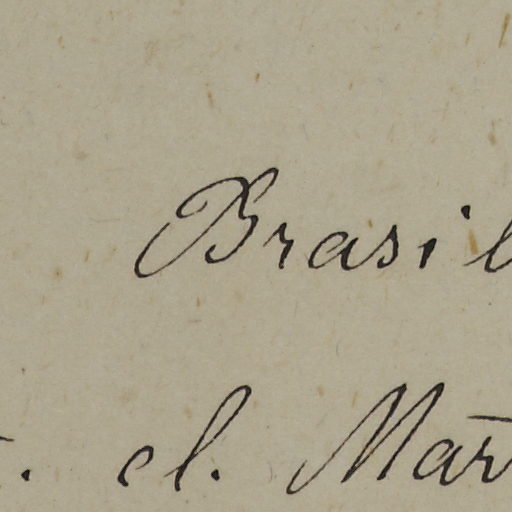 Brasil
. cl. Mar